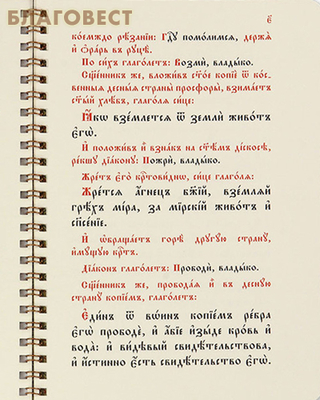 БЛАГОВЕСТ
є҃
коемждо рѣзанїи: Гдⷭ҇ꙋ помолимсѧ, держѧ
и҆ ѻ҆рарь въ рꙋцѣ.
По си́хъ глаго́летъ: Возмѝ, влады́ко.
Сщ҃е́нникъ же, вложи́въ ст҃о́е копїѐ ѿ ко́с-
венныѧ десны́ѧ страны̀ просфоры̀, взима́етъ
ст҃ы́й хлѣ́бъ, глаго́лѧ си́це:
Ꙗ҆́кѡ взе́млетсѧ ѿ землѝ живо́тъ
є҆гѡ̀.
И҆ положи́въ и҆̀ взна́къ на ст҃ѣ́мъ дї́скосѣ,
ре́кшꙋ дїа́конꙋ: Пожрѝ, влады́ко.
Жре́тъ є҆го̀ крⷭ҇тови́днѡ, си́це глаго́лѧ:
Жре́тсѧ а҆́гнецъ бж҃їй, взе́млѧй
грѣ́хъ мі́ра, за мірскі́й живо́тъ и҆
сп҃се́нїе.
И҆ ѡ҆браща́етъ горѣ̀ дрꙋгꙋ́ю странꙋ̀,
и҆мꙋ́щꙋю крⷭ҇тъ.
Дїа́конъ глаго́летъ: Прободѝ, влады́ко.
Сщ҃е́нникъ же, пробода́ѧ и҆̀ въ деснꙋ́ю
странꙋ̀ копїе́мъ, глаго́летъ:
Є҆ди́нъ ѿ во́инъ копїе́мъ ре́бра
є҆гѡ̀ прободѐ, и҆ а҆́бїе и҆зы́де кро́вь и҆
вода̀: и҆ ви́дѣвый свидѣ́тельствова,
и҆ и҆́стинно є҆́сть свидѣ́тельство є҆гѡ̀.